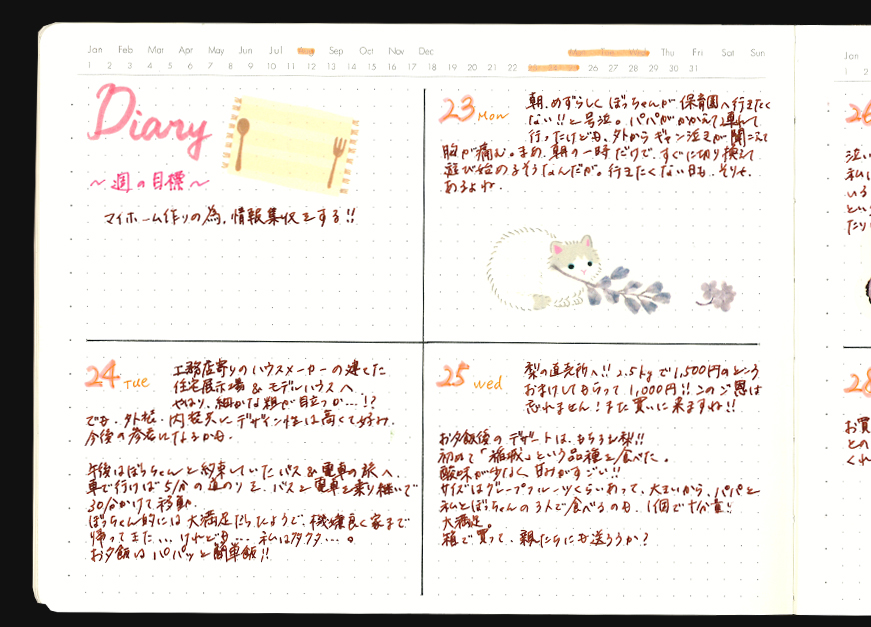 Jan Feb Mar Apr May Jun Jul Aug Sep Oct Nov Dec Mon Tue Wed Thu Fri Sat Sun
1 2 3 4 5 6 7 8 9 10 11 12 13 14 15 16 17 18 19 20 21 22 23 24 25 26 27 28 29 30 31
Diary
〜週の目標〜
マイホーム作りの為、情報集収をする!!
23 Mon
朝、めずらしくぼっちゃんが保育園へ行きたく
ない!!と号泣。パパがかかえて連れて
行ったけども、外からギャン泣きが聞こえて
胸が痛む。まぁ、朝の一時だけで、すぐに切り換えて
遊び始めるそうなんだが。行きたくない日も、そりゃ、
あるよね。
24 Tue
工務店寄りのハウスメーカーの建てた
住宅展示場&モデルハウスへ
やはり、細かな粗が目立つか…!?
でも、外観、内装共にデザイン性は高くて好み
今後の参考になるかも。
午後はぼっちゃんと約束していたバス&電車の旅へ。
車で行けば5分の道のりを、バスと電車を乗り継いで
30分かけて移動。
ぼっちゃん的には大満足だったようで、機嫌良く家まで
帰ってきた… けれども… 私はクタクタ…。
お夕飯はパパッと簡単飯!!
25 wed
梨の直売所へ!! 2.5kgで1,500円のところ
おまけしてもらって、1,000円!!このご恩は
忘れません!また買いに来ますね!!
お夕飯後のデザートは、もちろん梨!!
初めて「稲城」という品種を食べた。
酸味が少なく甘みがすごい!!
サイズはグレープフルーツくらいあって、大きいから、パパと
私とぼっちゃんの3人で食べるのも、1個で十分量!
大満足。
箱で買って、親たちにも送ろうか?
Jan
1 2
26
泣い
私は
いる
とい
たり
28
お買
との
くれ